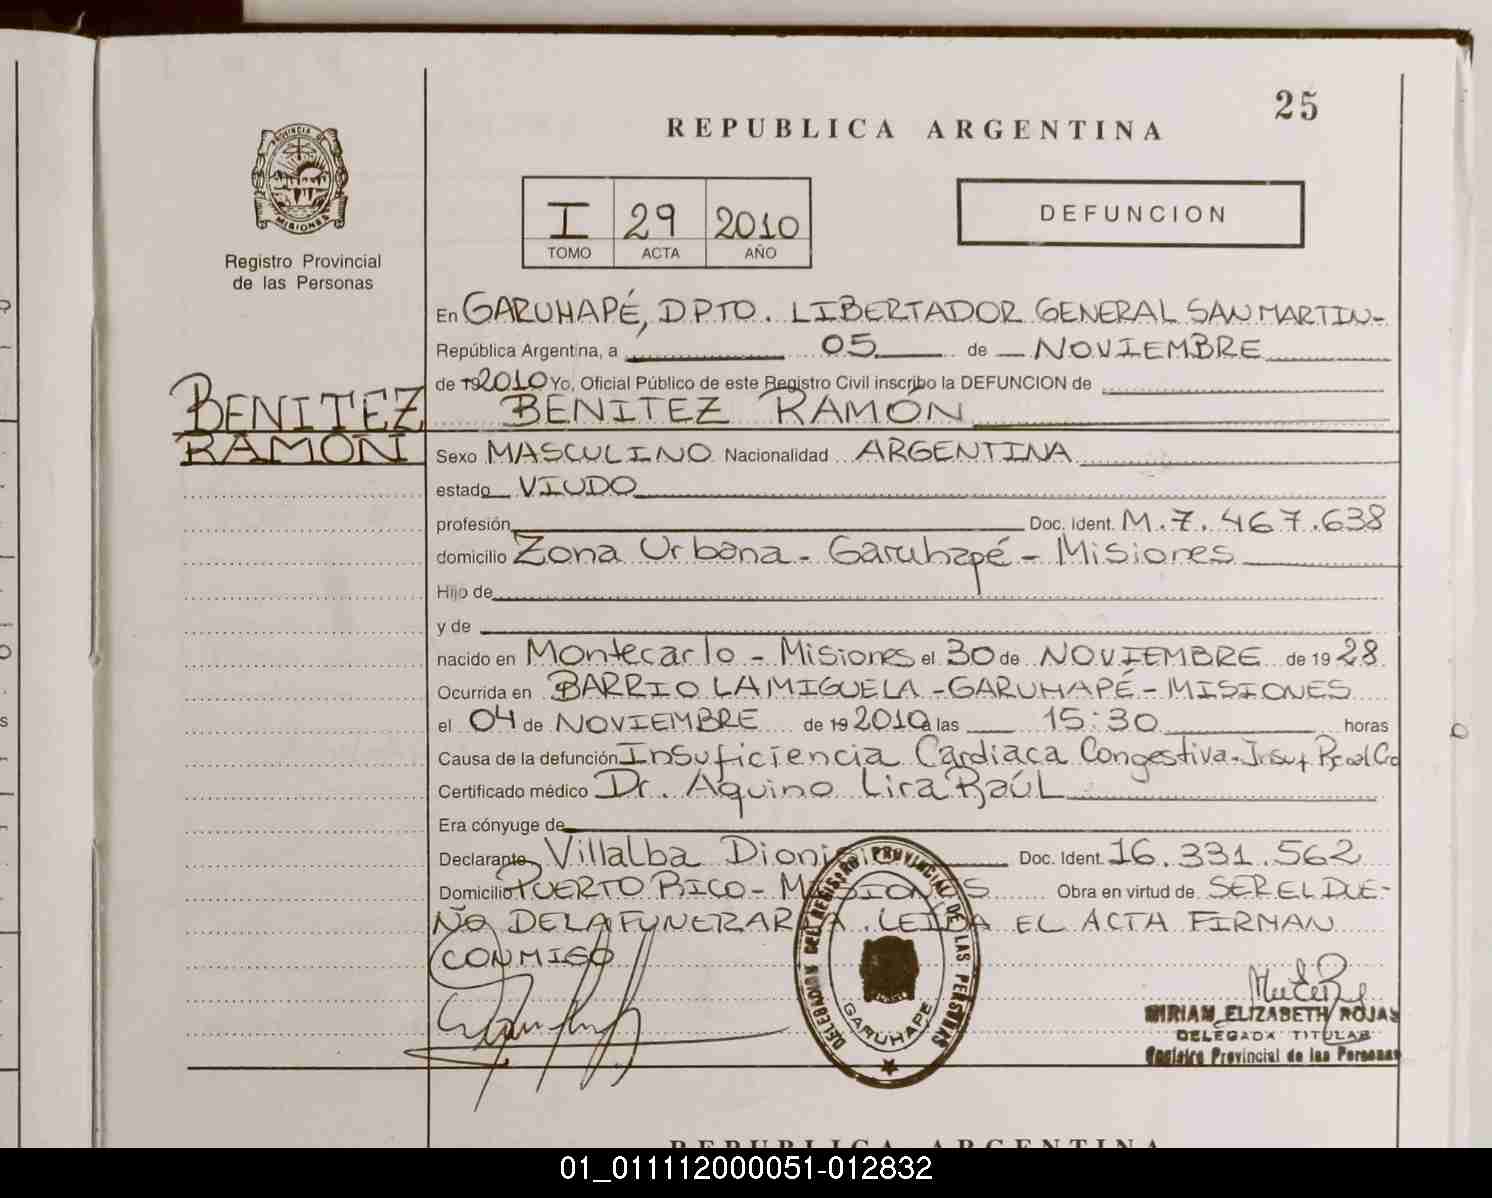 25
REPUBLICA ARGENTINA
PROVINCIA DE
MISIONES
Registro Provincial
de las Personas
I 29 2010
TOMO ACTA AÑO
DEFUNCION
En GARUHAPÉ, DPTO. LIBERTADOR GENERAL SAN MARTIN-
República Argentina, a 05 de NOVIEMBRE
de 192010 Yo, Oficial Público de este Registro Civil inscribo la DEFUNCION de
BENITEZ
RAMON
BENITEZ RAMÓN
Sexo MASCULINO Nacionalidad ARGENTINA
estado VIUDO
profesión Doc. Ident. M.7.467.638
domicilio Zona Urbana - Garuhapé - Misiones
Hijo de
y de
nacido en Montecarlo - Misiones el 30 de NOVIEMBRE de 1928
Ocurrida en BARRIO LA MIGUELA - GARUHAPÉ - MISIONES
el 04 de NOVIEMBRE de 19 2010 a las 15:30 horas
Causa de la defunción Insuficiencia Cardiaca Congestiva - Insuf
Certificado médico Dr. Aquino Lira Raúl
Era cónyuge de
Declarante Villalba Doc. Ident. 16.331.562
Domicilio PUERTO RICO - MISIONES Obra en virtud de SER EL DUE-
ÑO DE LA FUNERARIA. LEIDA EL ACTA FIRMAN
CONMIGO
DELEGACION DEL REGISTRO PROVINCIAL DE LAS PERSONAS
GARUHAPE
MIRIAM ELIZABETH ROJAS
DELEGADA TITULAR
Registro Provincial de las Personas
REPUBLICA ARGENTINA
01_011112000051-012832